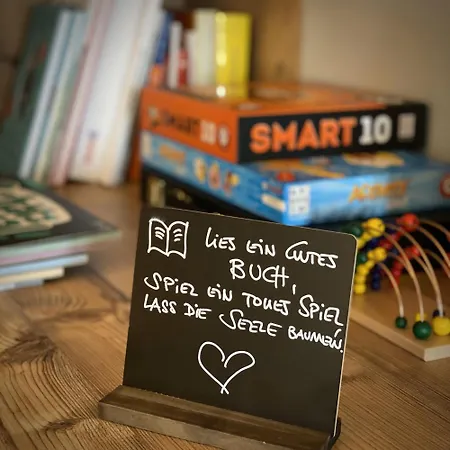 SMART 10
LIES EIN GUTES
BUCH,
SPIEL EIN TOLLES SPIEL
LASS DIE SEELE BAUMELN.